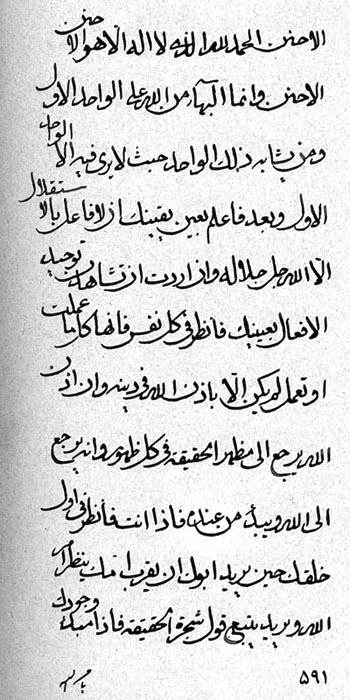 الاحزن الحمد لله الذی لا اله الا هو الاحزن
الاحزن وانما البهاء من الله علی الواحد الاول
ومن یشابه ذلک الواحد حیث لا یری فیه الا الواحد
الاول وبعد فاعلم بعین یقینک ان لا فاعل بالاستقلال
الا الله جل جلاله وان اردت ان تشاهدن توحید
الافعال بعینیک فانظر فی کل نفس فانها کل ما عملت
او تعمل لم یکن الا باذن الله فی دینه وان اذن
الله یرجع الی مظهر الحقیقة فی کل ظهور وانه یرجع
الی الله ویبدء من عنده فاذا انت فانظر فی اول
خلقک حین یرید ابوک ان یقرب امک ینظر امر
الله ویرید یتبع قول شجرة الحقیقة فاذا مبدء وجودک
۵۹۱